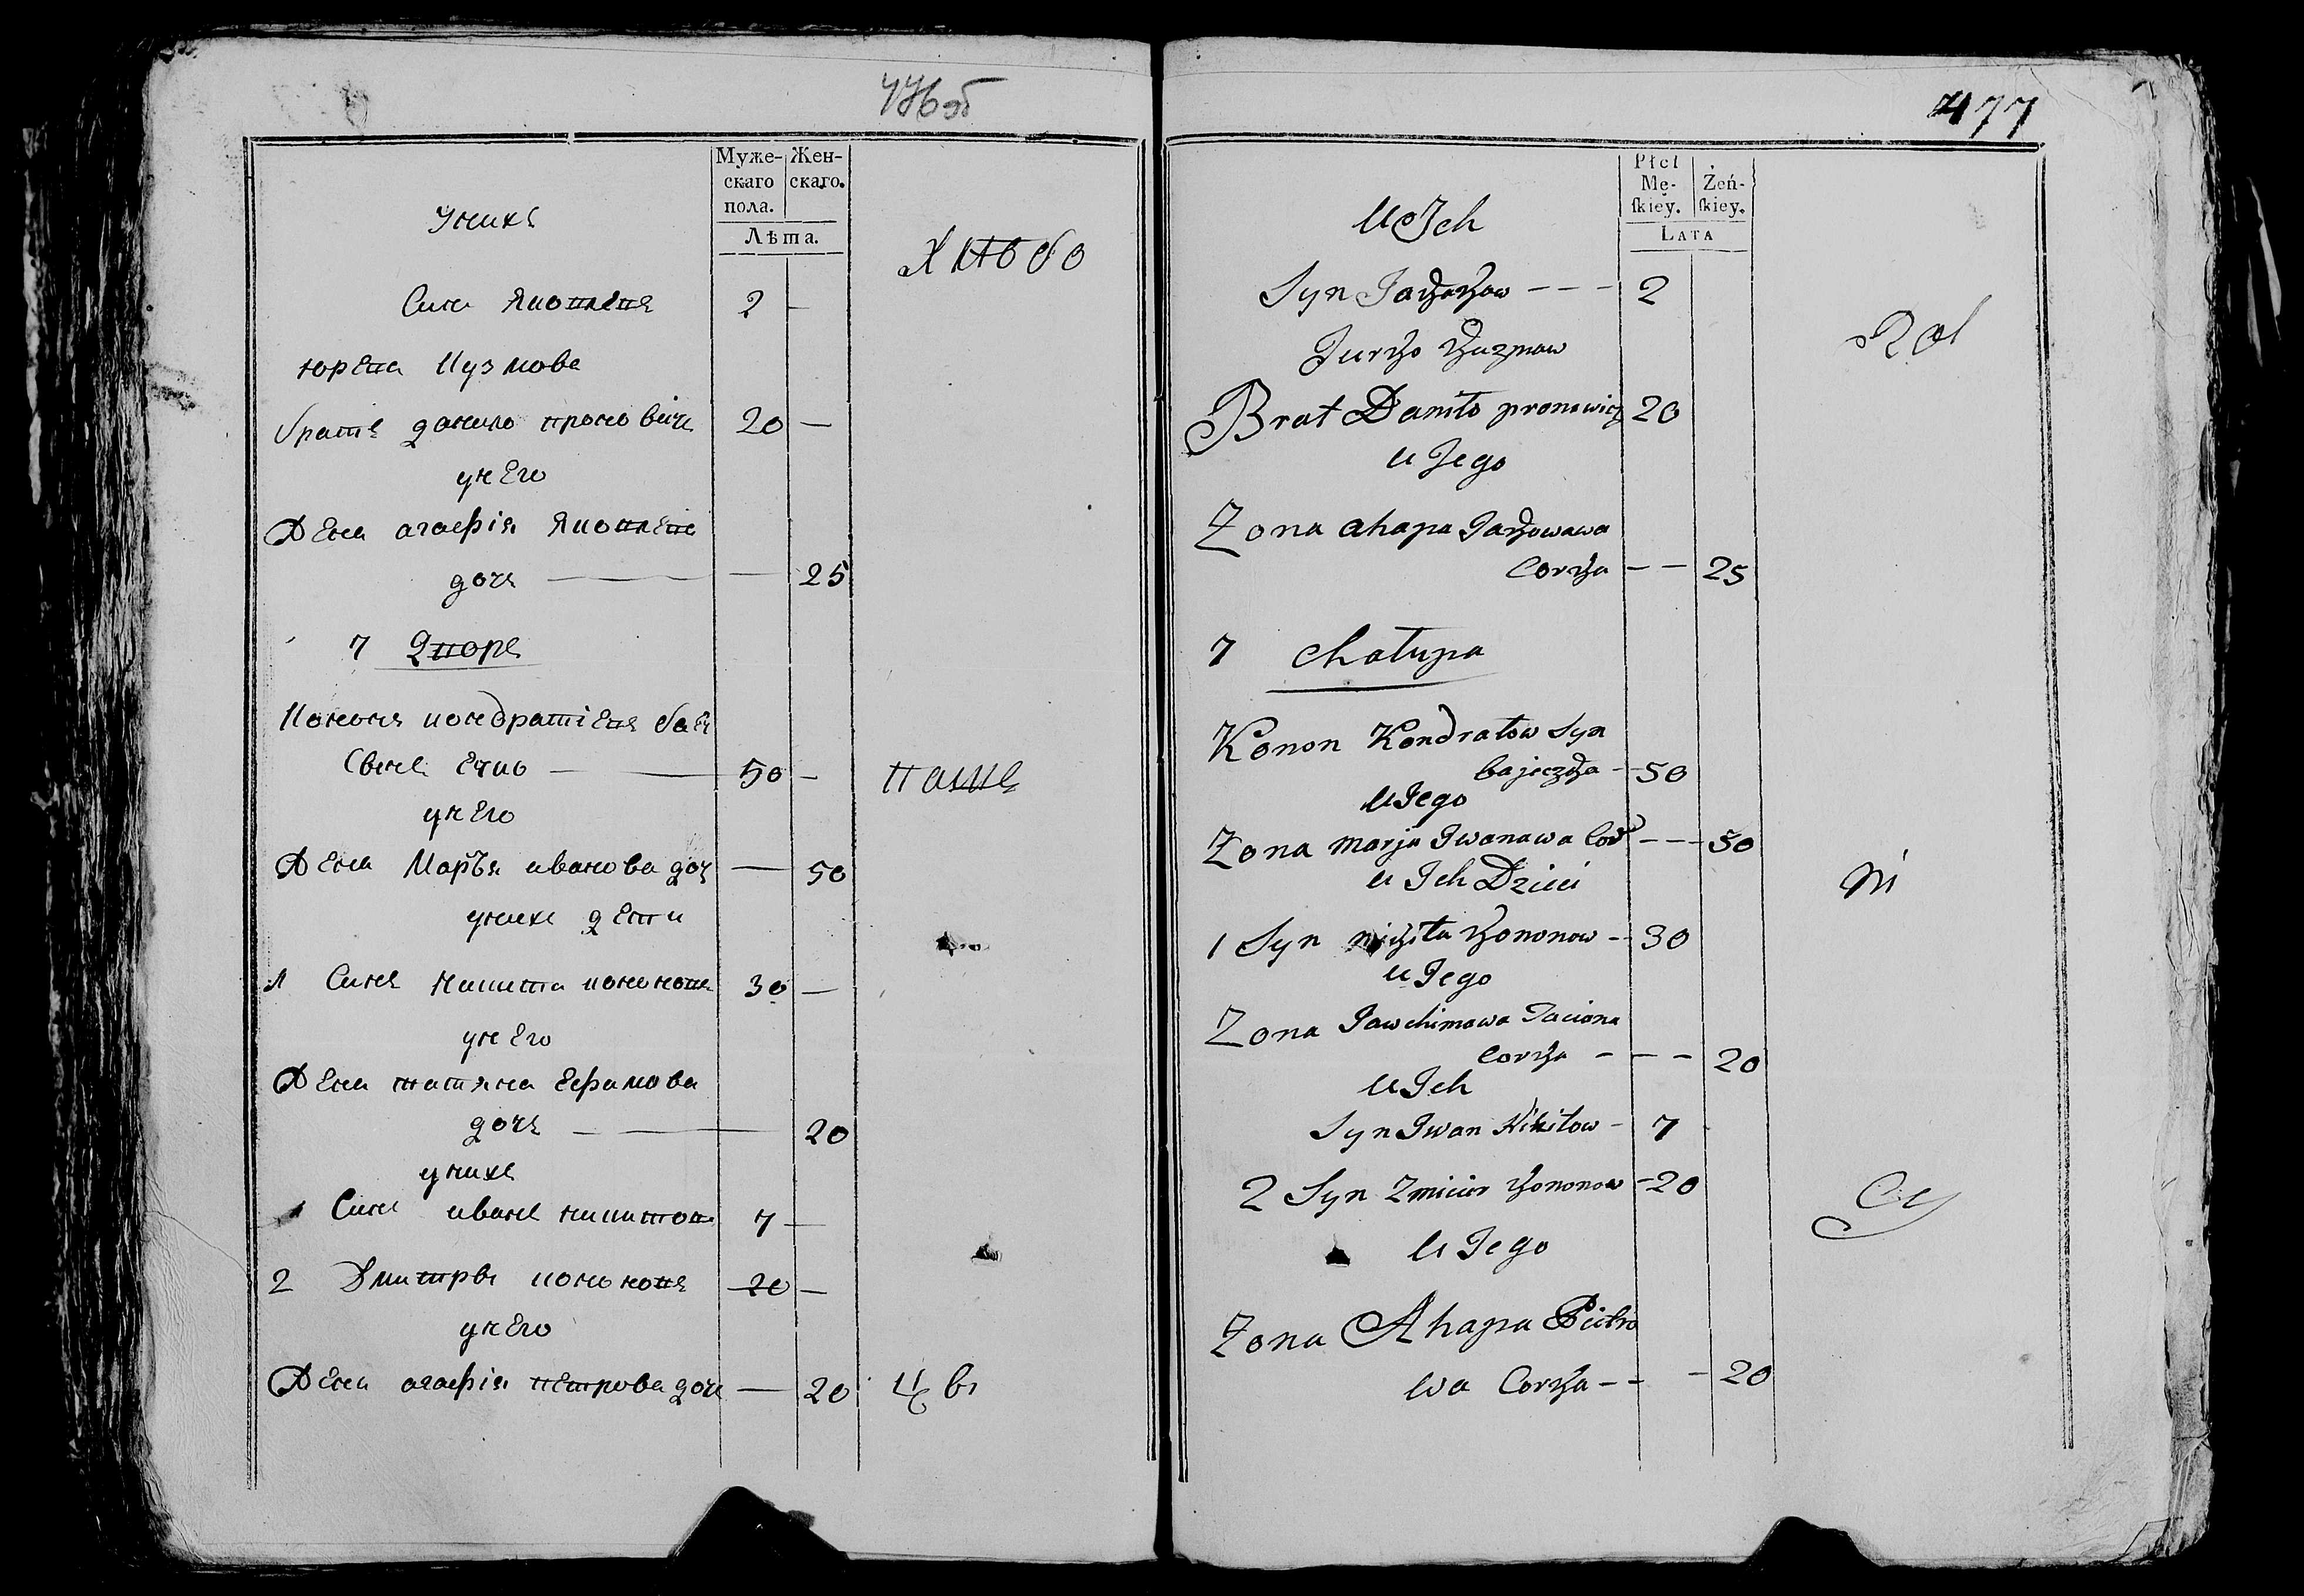 476 об
Муже-
скаго
пола.
Жен-
скаго.
Лѣта.
Унихъ
Хлѣбо
Синъ Яковлевъ 2 —
юрка Кузмовъ
братъ данило проновичъ 20 —
унего
Жена агафія Яковлева
дочь — — 25
7 Дворъ
Кононъ кондратіевъ
50 —
паше
унего
Жена Марья иванова доч — 50
унихъ дети
1 Синъ никита кононовъ 30 —
унего
Жена татяна Ефимова
дочь — 20
унихъ
1 Синъ иванъ никитовъ 7 —
2 Дмитры кононовъ 20 —
унего
Жена агафія петрова дочь — 20
цы
477
Płci
Mę-
ſkiey.
Żeń-
ſkiey.
LATA
U Ich
Syn Jakow --- 2
Rol
Jurko Kuzmow
Brat Daniło pronowicz 20
u Jego
Zona ahapa Jakowawa
Corka -- 25
7 chałupa
Konon Kondratow Syn
- 50
u Jego
Zona marja Iwanawa Cor --- 50
u Ich Dzieci
ni
1 Syn nikita kononow - 30
u Jego
Zona Jawchimowa Taciana
Corka --- 20
u Ich
Syn Iwan Nikitow - 7
2 Syn Zmicier kononow - 20
cy
u Jego
Zona Ahapa Pietro
wa Corka --- 20